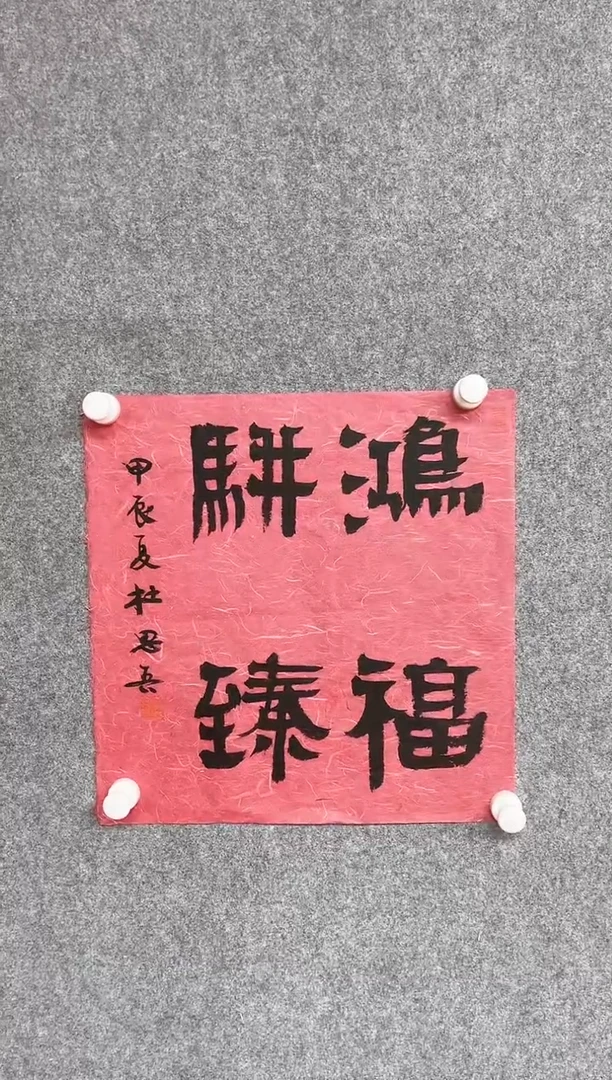 鴻福
駢臻
甲辰夏杜思吾